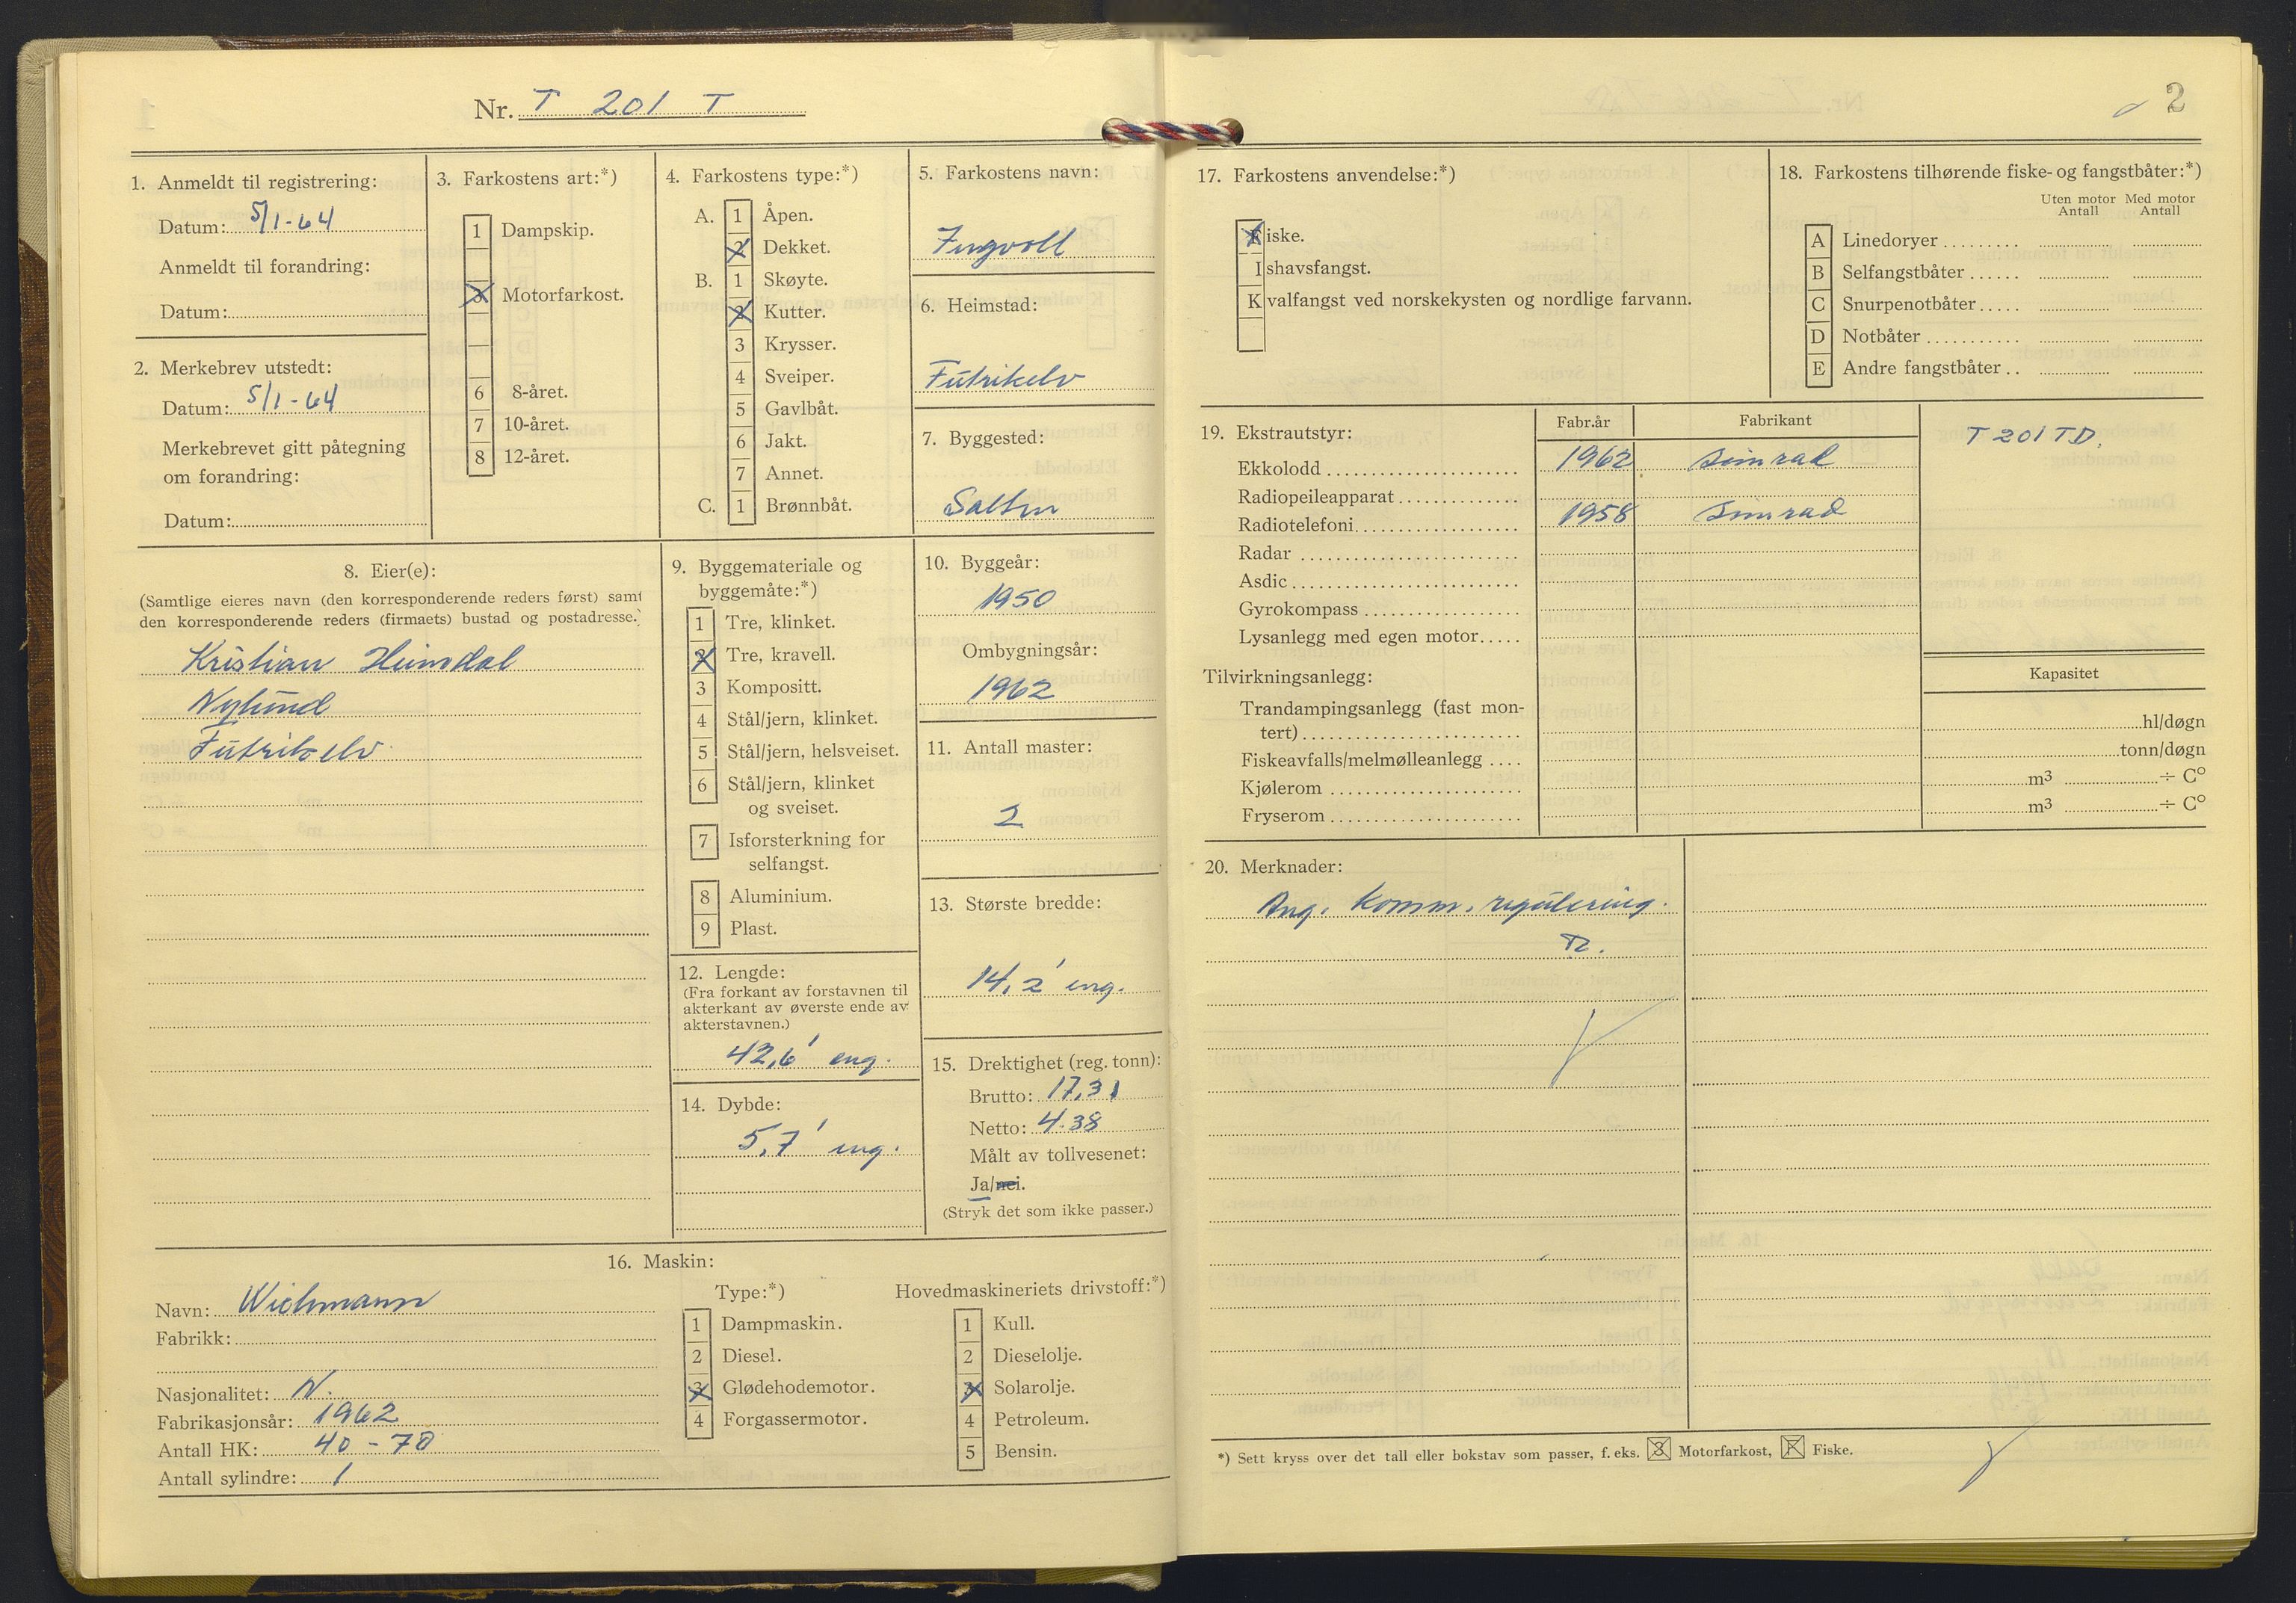 Nr. T 201 T
1. Anmeldt til registrering:
Datum: 5/1-64
Anmeldt til forandring:
Datum:
2. Merkebrev utstedt:
Datum: 5/1-64
Merkebrevet gitt påtegning
om forandring:
Datum:
3. Farkostens art:*)
1 Dampskip.
3 Motorfarkost.
6 8-året.
7 10-året.
8 12-året.
4. Farkostens type:*)
A. 1 Åpen.
2 Dekket.
B. 1 Skøyte.
2 Kutter.
3 Krysser.
4 Sveiper.
5 Gavlbåt.
6 Jakt.
7 Annet.
C. 1 Brønnbåt.
5. Farkostens navn:
Ingvoll
6. Heimstad:
Futrikelv
7. Byggested:
Salten
8. Eier(e):
(Samtlige eieres navn (den korresponderende reders først) samt
den korresponderende reders (firmaets) bustad og postadresse.)
Kristian Heimdal
Nylund
Futrikelv
9. Byggemateriale og
byggemåte:*)
1 Tre, klinket.
2 Tre, kravell.
3 Kompositt.
4 Stål/jern, klinket.
5 Stål/jern, helsveiset.
6 Stål/jern, klinket
og sveiset.
7 Isforsterkning for
selfangst.
8 Aluminium.
9 Plast.
10. Byggeår:
1950
Ombygningsår:
1962
11. Antall master:
2
12. Lengde:
(Fra forkant av forstavnen til
akterkant av øverste ende av
akterstavnen.)
42,6' eng.
13. Største bredde:
14,2' eng.
14. Dybde:
5,7' eng.
15. Drektighet (reg. tonn):
Brutto: 17,31
Netto: 4.38
Målt av tollvesenet:
Ja/nei.
(Stryk det som ikke passer.)
16. Maskin:
Navn: Wichmann
Fabrikk:
Nasjonalitet: N.
Fabrikasjonsår: 1962
Antall HK: 40 - 70
Antall sylindre: 1
Type:*)
1 Dampmaskin.
2 Diesel.
3 Glødehodemotor.
4 Forgassermotor.
Hovedmaskineriets drivstoff:*)
1 Kull.
2 Dieselolje.
3 Solarolje.
4 Petroleum.
5 Bensin.
2
17. Farkostens anvendelse:*)
Fiske.
Ishavsfangst.
Kvalfangst ved norskekysten og nordlige farvann.
18. Farkostens tilhørende fiske- og fangstbåter:*)
Uten motor Med motor
Antall Antall
A Linedoryer
B Selfangstbåter
C Snurpenotbåter
D Notbåter
E Andre fangstbåter
19. Ekstrautstyr: Fabr.år Fabrikant
Ekkolodd 1962 Simrad
Radiopeileapparat
Radiotelefoni 1958 Simrad
Radar
Asdic
Gyrokompass
Lysanlegg med egen motor
T 201 TD.
Tilvirkningsanlegg: Kapasitet
Trandampingsanlegg (fast mon-
tert) hl/døgn
Fiskeavfalls/melmølleanlegg tonn/døgn
Kjølerom m³ ÷ C°
Fryserom m³ ÷ C°
20. Merknader:
Ang. Komm. regulering.
*) Sett kryss over det tall eller bokstav som passer, f. eks. 3 Motorfarkost, F Fiske.